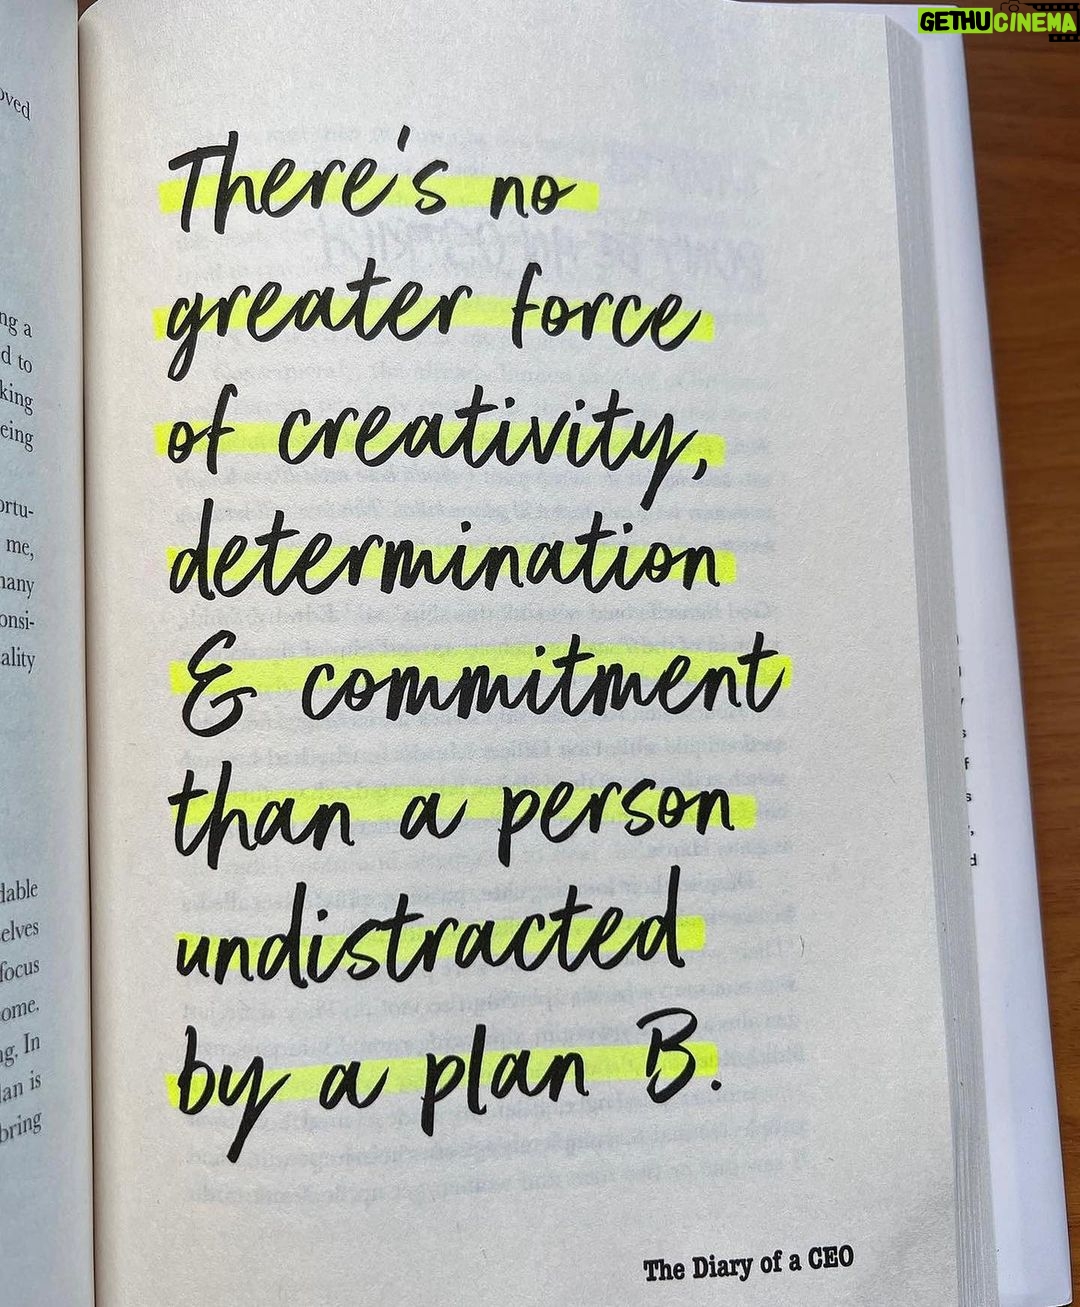 GETHUCINEMA
oved
ng a
d to
king
eing
ortu-
me,
many
onsi-
ality
dable
elves
focus
ome.
ng. In
lan is
bring
There's no
greater force
of creativity,
determination
& commitment
than a person
undistracted
by a plan B.
The Diary of a CEO